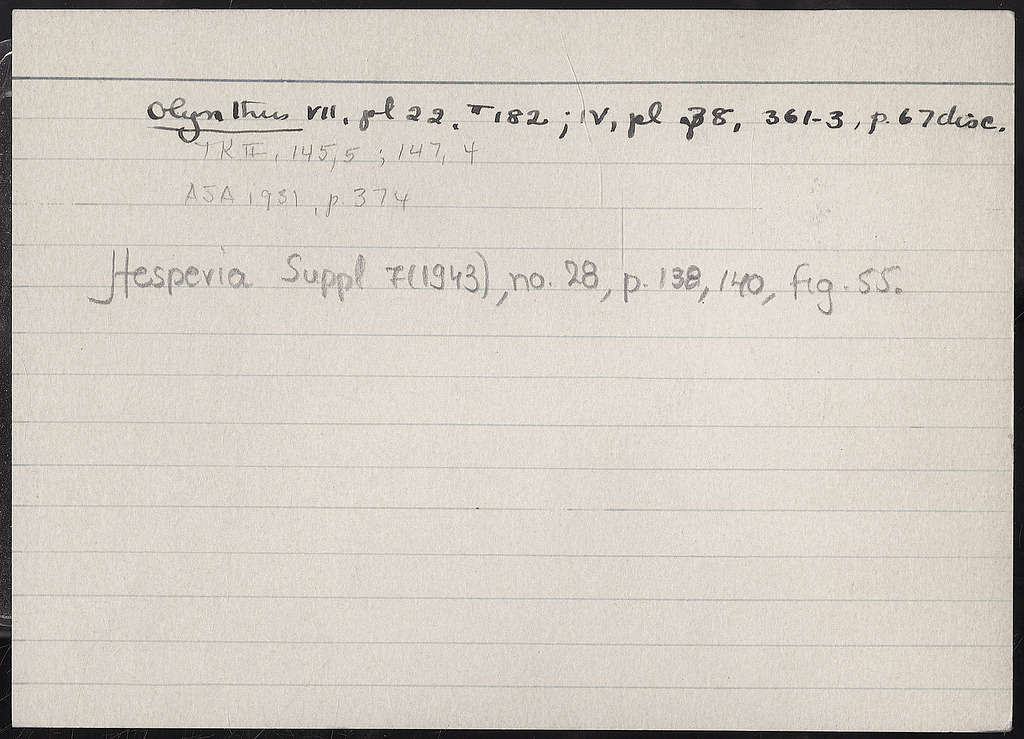 Olynthus VII, pl 22, T 182 ; IV, pl 38, 361-3, p. 67 disc.
TK II, 145,5 ; 147, 4
AJA 1931, p. 374
Hesperia Suppl 7(1943), no. 28, p. 138, 140, fig. 55.